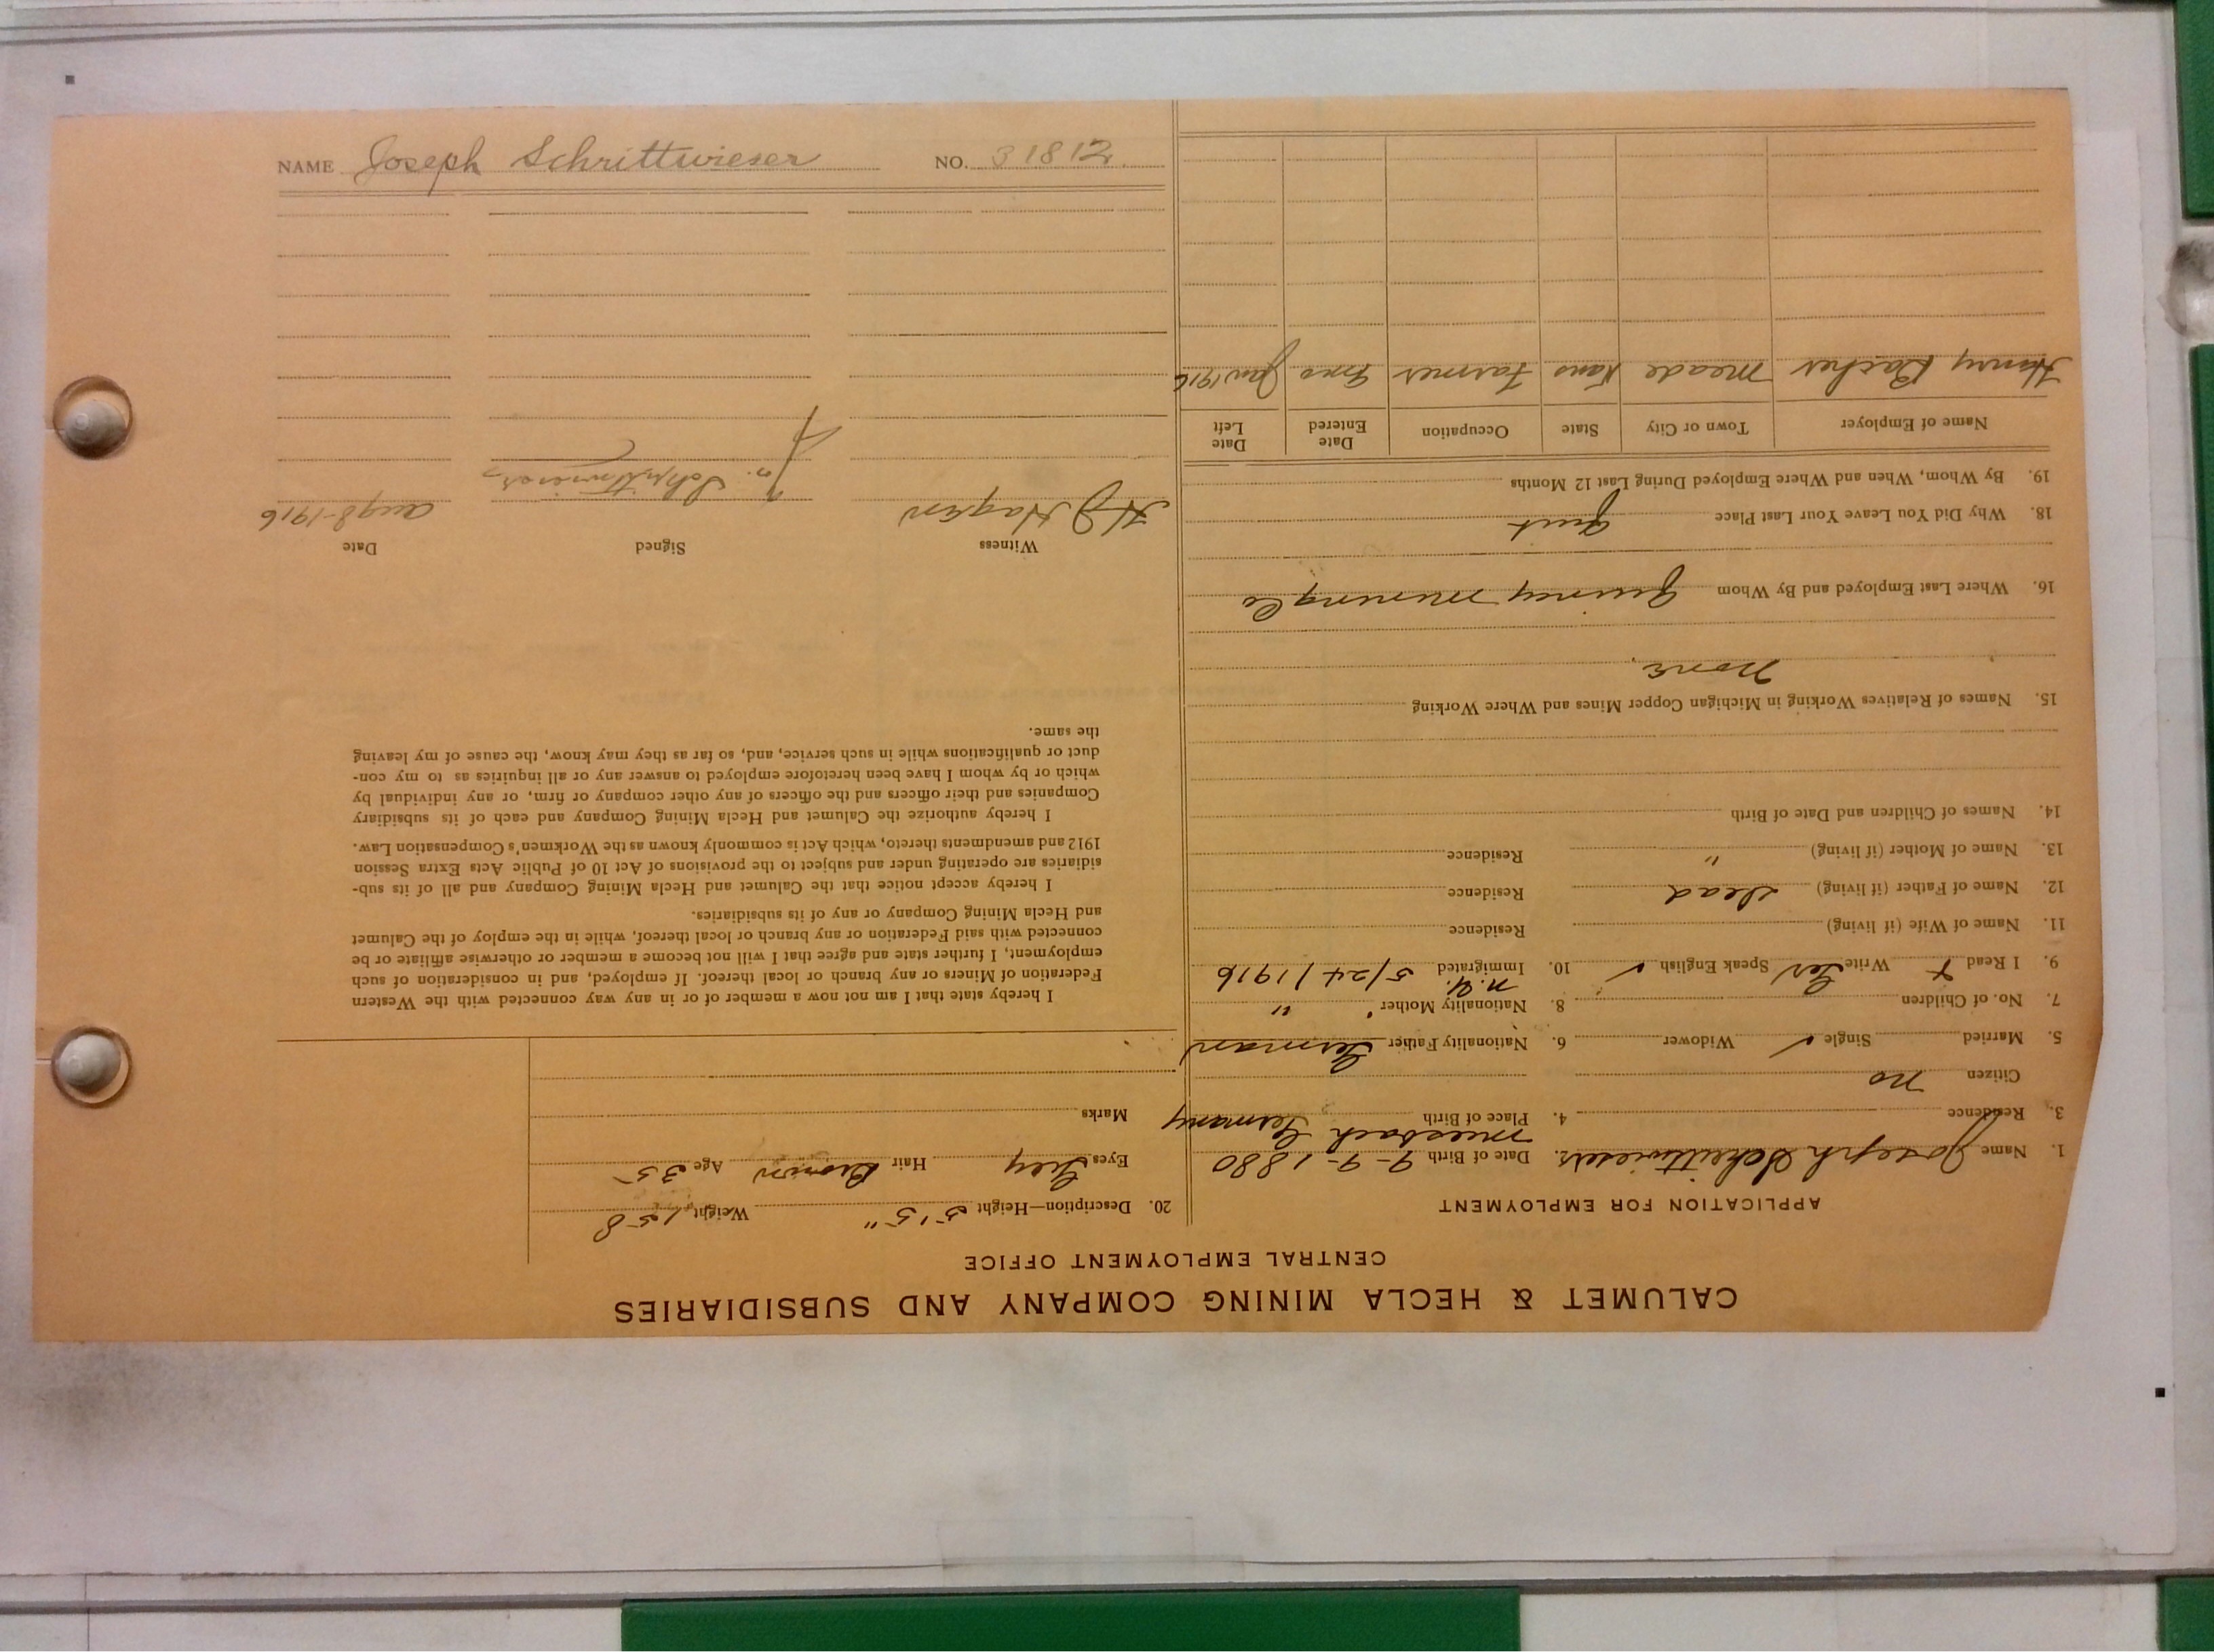 CALUMET & HECLA MINING COMPANY AND SUBSIDIARIES
CENTRAL EMPLOYMENT OFFICE
APPLICATION FOR EMPLOYMENT
1. Name Joseph Schrittwieser 2. Date of Birth 9-9-1880
3. Residence 4. Place of Birth Miesbach Germany
Citizen no
5. Married Single ✓ Widower 6. Nationality Father German
7. No. of Children 8. Nationality Mother "
9. I Read + Write Ger Speak English ✓ 10. Immigrated N.Y. 5/24/1916
11. Name of Wife (if living) Residence
12. Name of Father (if living) dead Residence
13. Name of Mother (if living) " Residence
14. Names of Children and Date of Birth
15. Names of Relatives Working in Michigan Copper Mines and Where Working
None.
16. Where Last Employed and By Whom Quincy Mining Co
18. Why Did You Leave Your Last Place Quit
19. By Whom, When and Where Employed During Last 12 Months
Name of Employer Town or City State Occupation Date Entered Date Left
Henry Meade Kans Farmer Jan 1916
20. Description—Height 5'5" Weight 158
Eyes Grey Hair Brown Age 35
Marks
I hereby state that I am not now a member of or in any way connected with the Western
Federation of Miners or any branch or local thereof. If employed, and in consideration of such
employment, I further state and agree that I will not become a member or otherwise affiliate or be
connected with said Federation or any branch or local thereof, while in the employ of the Calumet
and Hecla Mining Company or any of its subsidiaries.
I hereby accept notice that the Calumet and Hecla Mining Company and all of its sub-
sidiaries are operating under and subject to the provisions of Act 10 of Public Acts Extra Session
1912 and amendments thereto, which Act is commonly known as the Workmen's Compensation Law.
I hereby authorize the Calumet and Hecla Mining Company and each of its subsidiary
Companies and their officers and the officers of any other company or firm, or any individual by
which or by whom I have been heretofore employed to answer any or all inquiries as to my con-
duct or qualifications while in such service, and, so far as they may know, the cause of my leaving
the same.
Witness Signed Date
H J Hagen Jo. Schrittwieser Aug 8-1916
NAME Joseph Schrittwieser NO. 31812